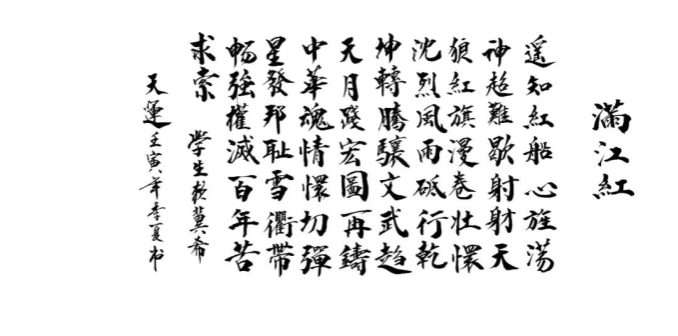 滿江紅
遥知紅船心旌荡
神超難歇射射天
狼紅旗漫卷壮懷
沈烈風雨砥行乾
坤轉騰驤文武趋
天月踐宏圖再鑄
中華魂情懷切彈
星發邦耻雪衢带
畅強權滅百年苦
求索
學生 冀希
天運壬寅年季夏书